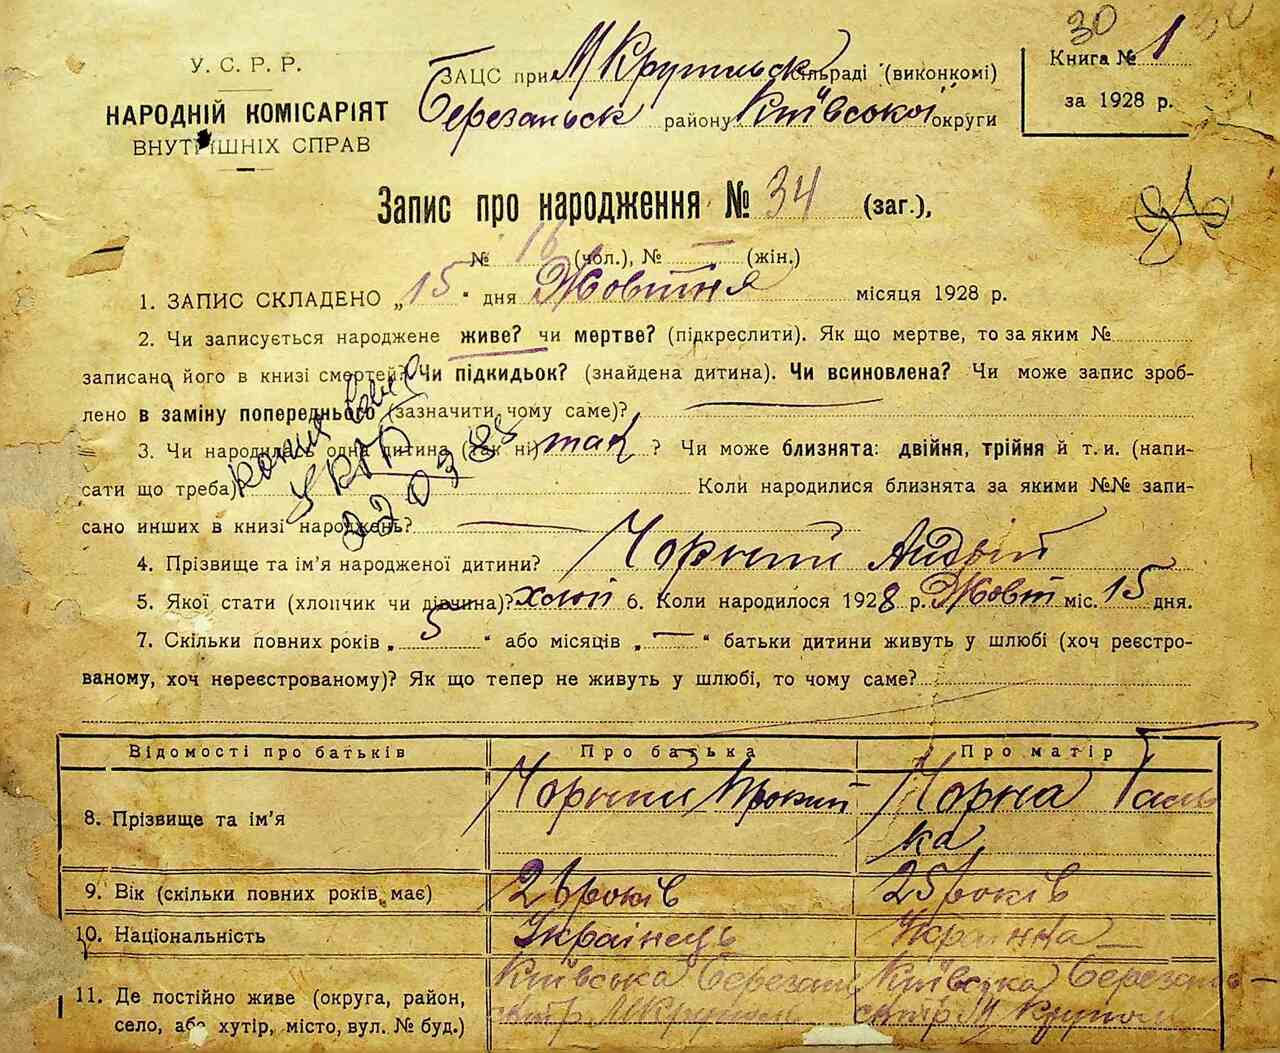 30
У. С. Р. Р.
НАРОДНІЙ КОМІСАРІЯТ
ВНУТРІШНІХ СПРАВ
ЗАЦС при М Крупільск сільраді (виконкомі)
Березанськ району Київської округи
Книга № 1
за 1928 р.
Запис про народження № 34 (заг.),
№ 16 (чол.), № — (жін.)
1. ЗАПИС СКЛАДЕНО „ 15 “ дня Жовтня місяця 1928 р.
2. Чи записується народжене живе? чи мертве? (підкреслити). Як що мертве, то за яким №
записано його в книзі смертей? Чи підкидьок? (знайдена дитина). Чи всиновлена? Чи може запис зроб-
лено в заміну попереднього (зазначити чому саме)? —
3. Чи народилась одна дитина (так ні) так ? Чи може близнята: двійня, трійня й т. и. (напи-
сати що треба) Коли народилися близнята за якими №№ запи-
сано инших в книзі народжень? —
22 03 85
4. Прізвище та ім’я народженої дитини? Чорний Андрій
5. Якої стати (хлопчик чи дівчина)? хлоп 6. Коли народилося 1928 р. Жовт міс. 15 дня.
7. Скільки повних років „ 5 “ або місяців „ — “ батьки дитини живуть у шлюбі (хоч реєстро-
ваному, хоч нереєстрованому)? Як що тепер не живуть у шлюбі, то чому саме?
Відомості про батьків Про батька Про матір
8. Прізвище та ім’я Чорний Прокіп Чорна Галь
ка
9. Вік (скільки повних років має) 26 років 25 років
10. Національність Українець Українка
11. Де постійно живе (округа, район, Київська Березан Київська Березань-
село, або хутір, місто, вул. № буд.) М Крупіль М Крупіль